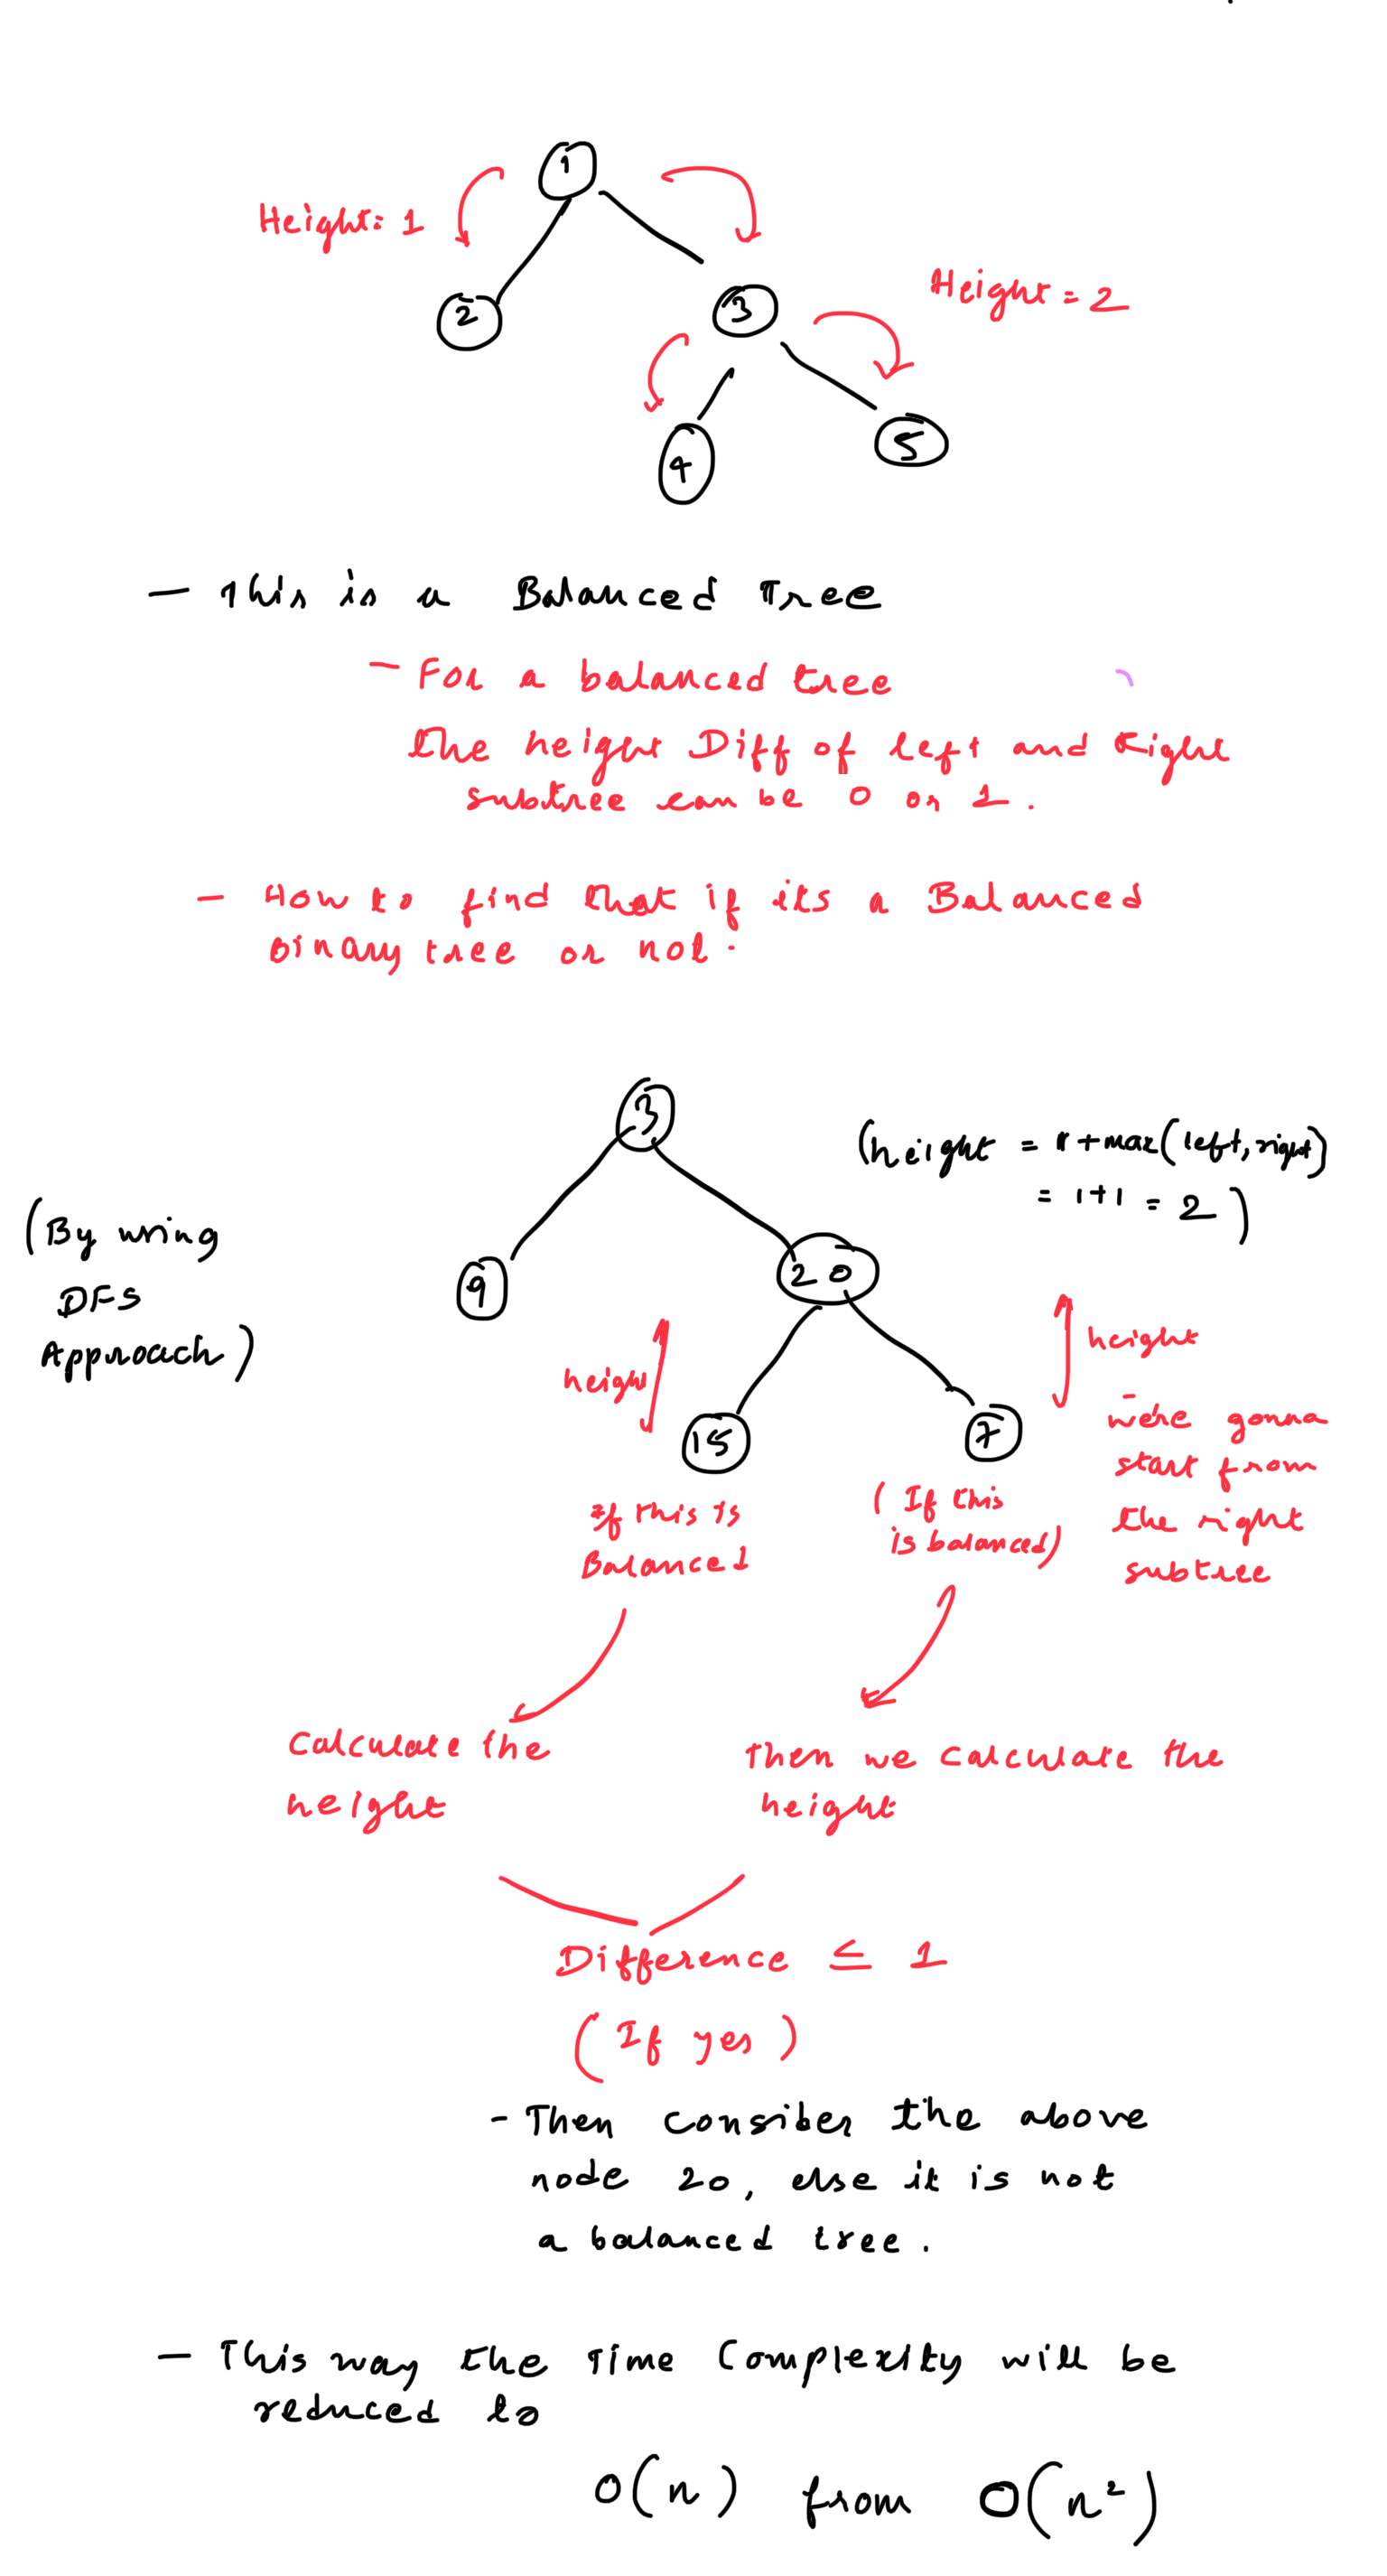 1
Height: 1
2
3
Height = 2
4
5
- This is a Balanced Tree
- For a balanced tree
the height Diff of left and Right
subtree can be 0 or 1.
- How to find that if its a Balanced
Binary tree or not.
3
(height = 1+max(left, right)
= 1+1 = 2)
(By using
DFS
Approach)
9
20
height
height
15
7
- we're gonna
start from
the right
subtree
If this is
Balanced
(If this
is balanced)
Calculate the
height
Then we calculate the
height
Difference ≤ 1
(If yes)
- Then consider the above
node 20, else it is not
a balanced tree.
- This way the Time Complexity will be
reduced to
O(n) from O(n²)